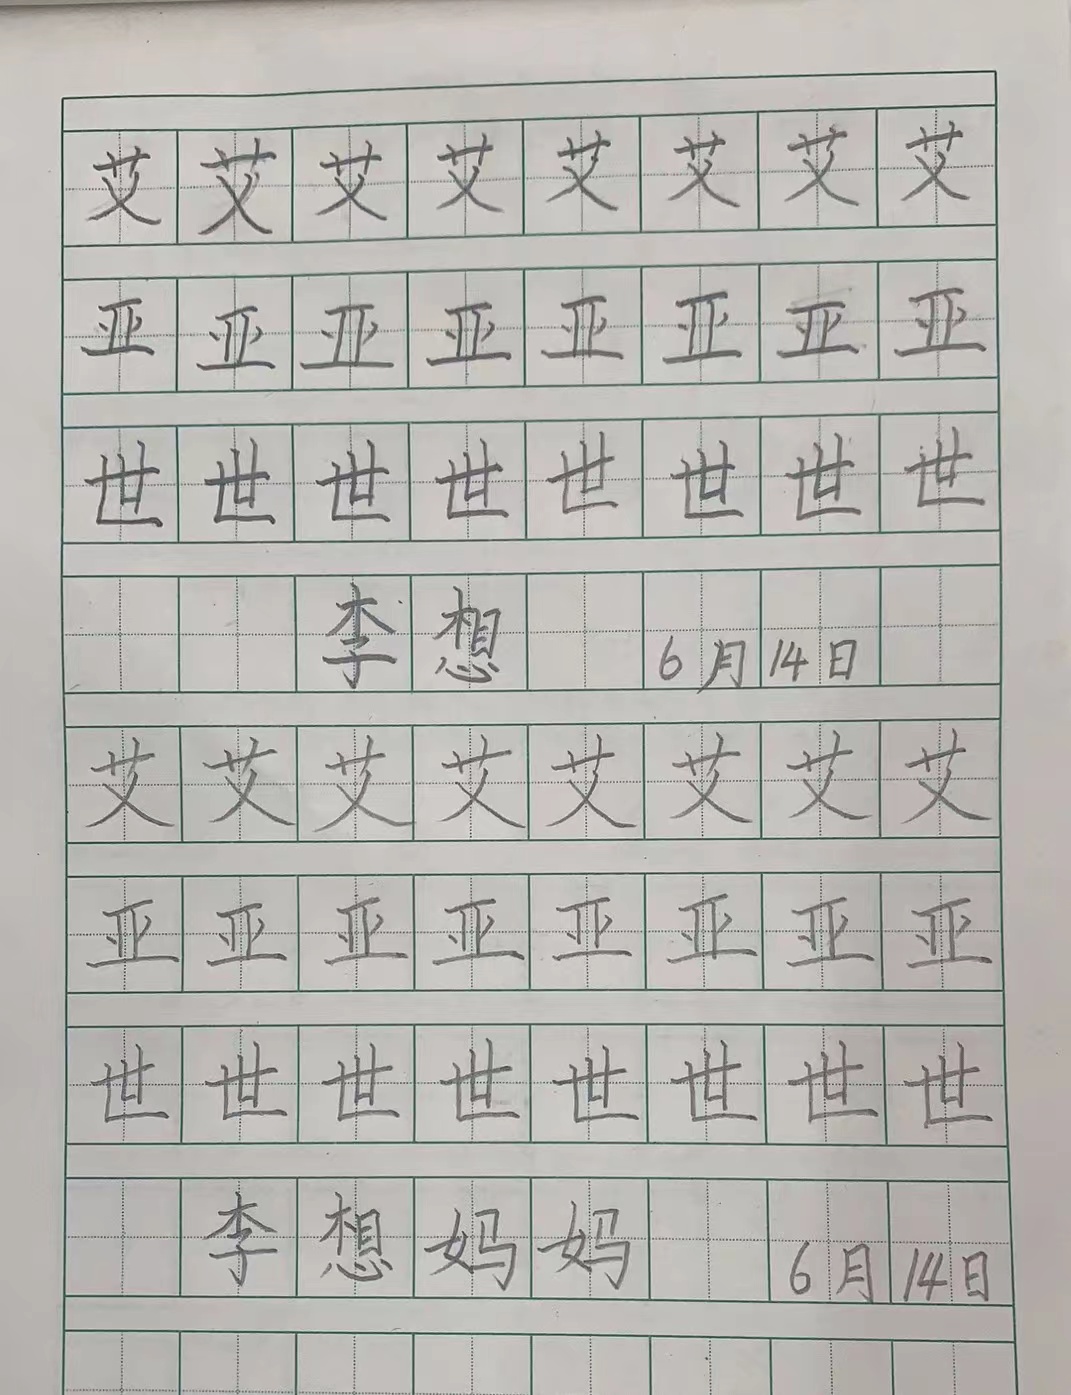 艾艾艾艾艾艾艾艾
亚亚亚亚亚亚亚亚
世世世世世世世世
李想 6月14日
艾艾艾艾艾艾艾艾
亚亚亚亚亚亚亚亚
世世世世世世世世
李想妈妈 6月14日